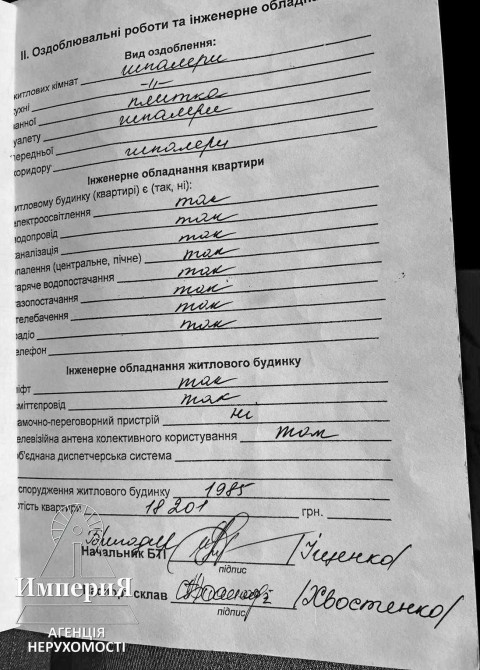 II. Оздоблювальні роботи та інженерне обладна
Вид оздоблення:
житлових кімнат шпалери
ухні -||-
ванної плитка
уалету шпалери
передньої
коридору шпалери
Інженерне обладнання квартири
итловому будинку (квартирі) є (так, ні):
електроосвітлення так
водопровід так
каналізація так
палення (центральне, пічне) так
гаряче водопостачання так
газопостачання так
телебачення так
радіо так
елефон
Інженерне обладнання житлового будинку
ліфт так
сміттєпровід так
замочно-переговорний пристрій ні
телевізійна антена колективного користування так
об'єднана диспетчерська система
спорудження житлового будинку 1985
ртість квартири 18 201 грн.
Начальник БТІ /Іщенко/
підпис
склав /Хвостенко/
підпис
ИмпериЯ
АГЕНЦІЯ
НЕРУХОМОСТІ